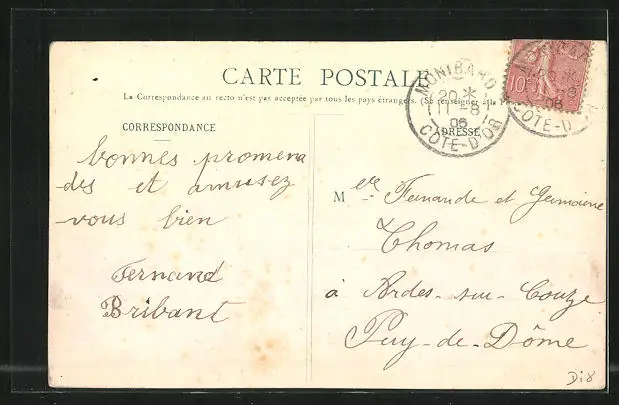 CARTE POSTALE
La Correspondance au recto n'est pas acceptée par tous les pays étrangers. (Se renseigner à la
CORRESPONDANCE
ADRESSE
bonnes promena
des et amusez
vous bien
Fernand
Bribant
Melle Fernande et Germaine
Thomas
à Ardes-sur-Couze
Puy-de-Dôme
MONTBARD
20 *
11 -8
06
COTE-D'OR
10
MONTBARD
20 *
06
COTE-D'OR